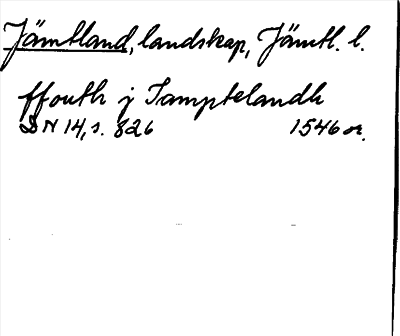 Jämtland, landskap, Jämtl. l.
ffouth j Jamptelandh
DN 14, s. 826 1546 or.